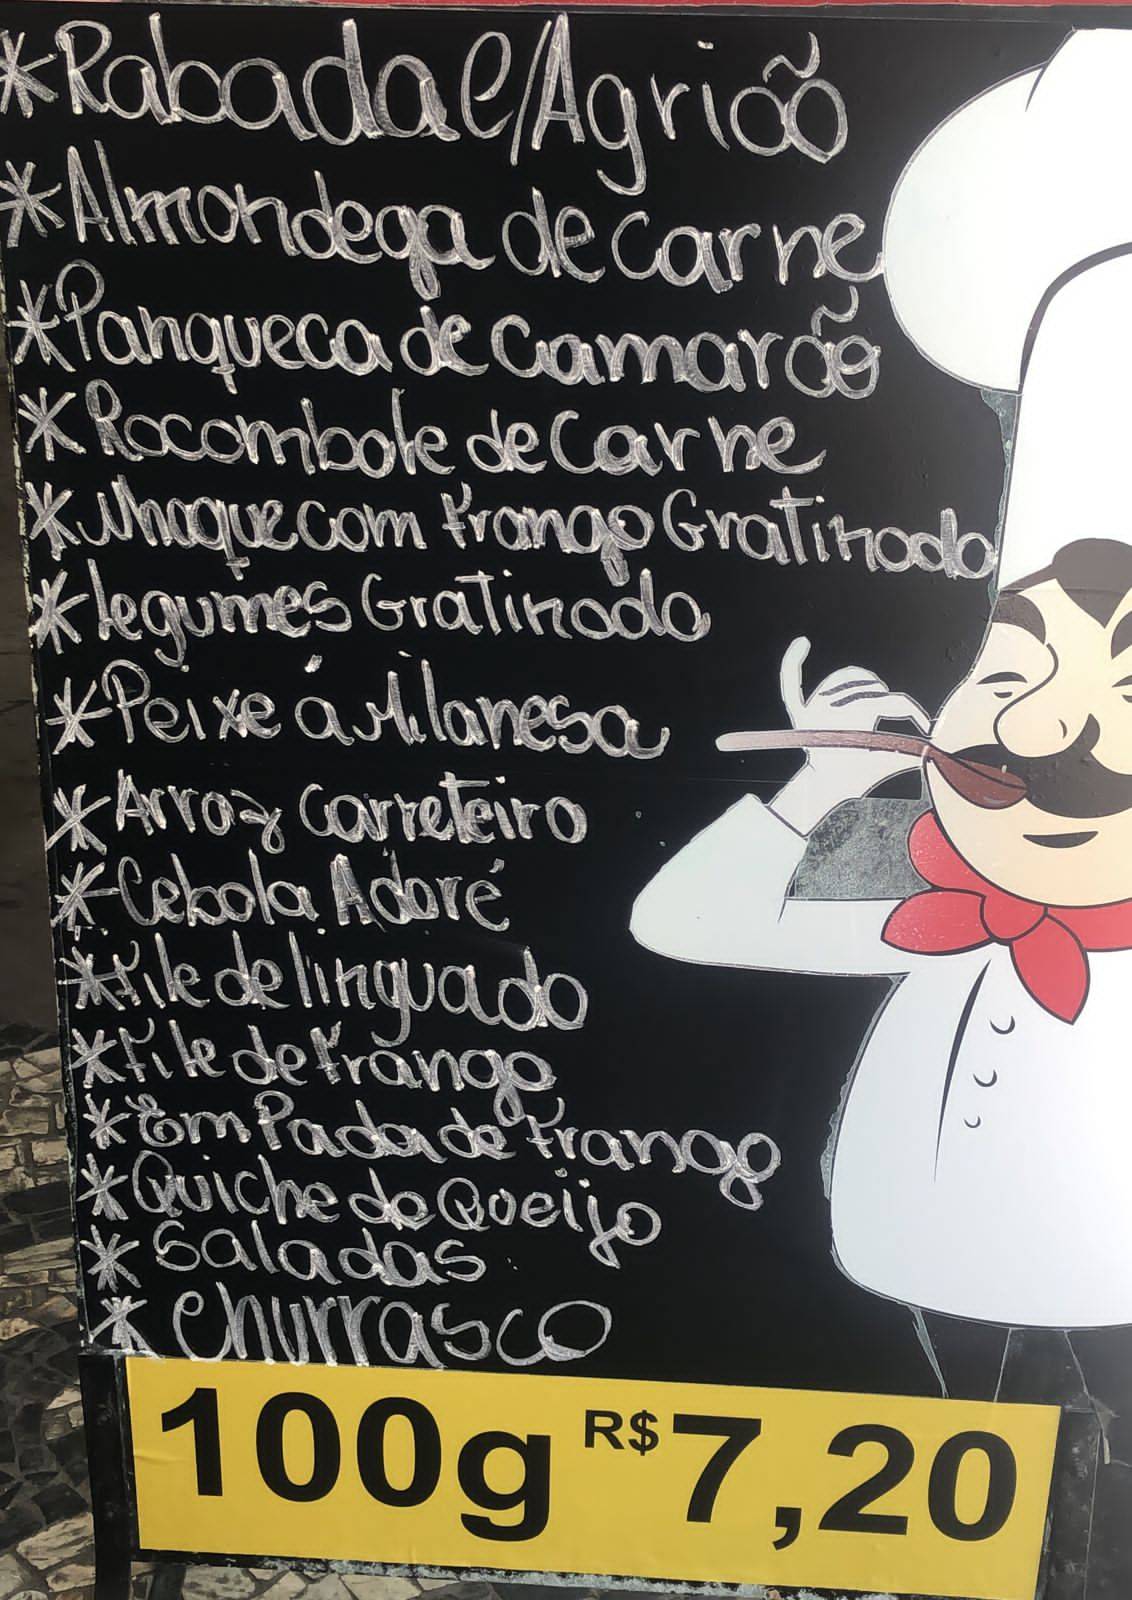 *Rabada c/Agrião
*Almondega de Carne
*Panqueca de Camarão
*Rocombole de Carne
*Nhoque com Frango Gratinado
*Legumes Gratinado
*Peixe á Milanesa
*Arroz Carreteiro
*Cebola Adoré
*File de linguado
*File de Frango
*Em Pada de Frango
*Quiche de Queijo
*Saladas
*Churrasco
100g R$7,20